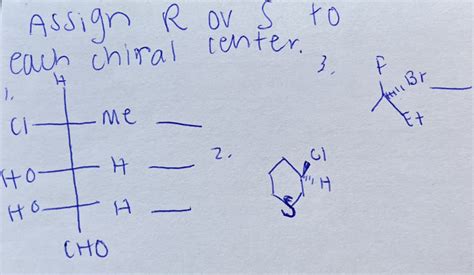 Assign R or S to
each chiral center.
1.
H
Cl Me
HO H
HO H
CHO
2.
Cl
H
S
3.
F
Br
Et